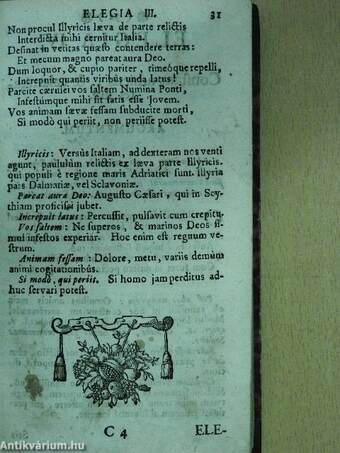 ELEGIA III. 31
Non procul Illyricis læva de parte relictis
Interdicta mihi cernitur Italia.
Desinat in vetitas quæso contendere terras:
Et mecum magno pareat aura Deo.
Dum loquor, & cupio pariter, timeóque repelli,
Increpuit quantis viribus unda latus!
Parcite cærulei vos saltem Numina Ponti,
Infestumque mihi sit satis esse Jovem.
Vos animam sævæ fessam subducite morti,
Si modò qui periit, non periisse potest.
Illyricis: Versùs Italiam, ad dexteram nos venti
agunt, paululùm relictis ex læva parte Illyricis.
qui populi è regione maris Adriatici sunt. Illyria
pars Dalmatiæ, vel Sclavoniæ.
Pareat aura Deo: Augusto Cæsari, qui in Scy-
thiam proficisci jubet.
Increpuit latus: Percussit, pulsavit cum crepitu.
Vos saltem: Ne superos, & marinos Deos si-
mul infestos experiar. Hoc enim est regnum ve-
strum.
Animam fessam: Dolore, metu, variis demùm
animi cogitationibus.
Si modò, qui periit. Si homo jam perditus ad-
huc servari potest.
C 4 ELE-
Antikvárium.hu